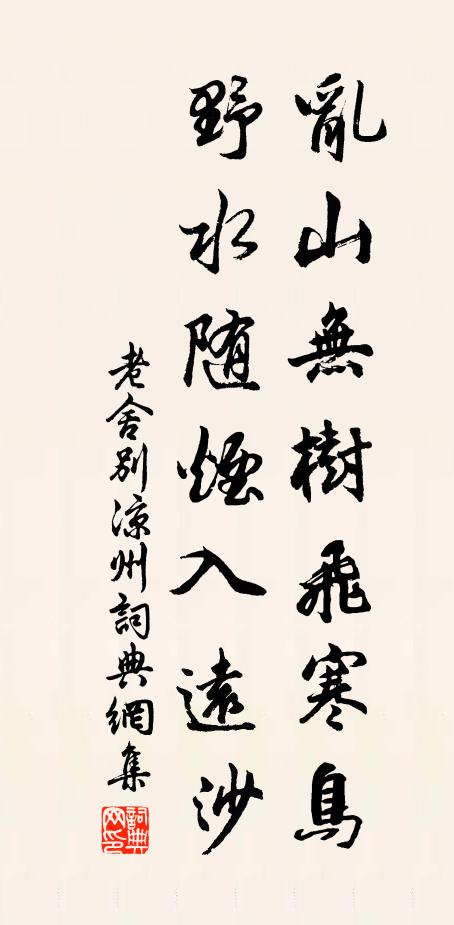 亂山無樹飛寒鳥
野水随煙入遠沙
老舍別涼州詞典網集
詞典網印